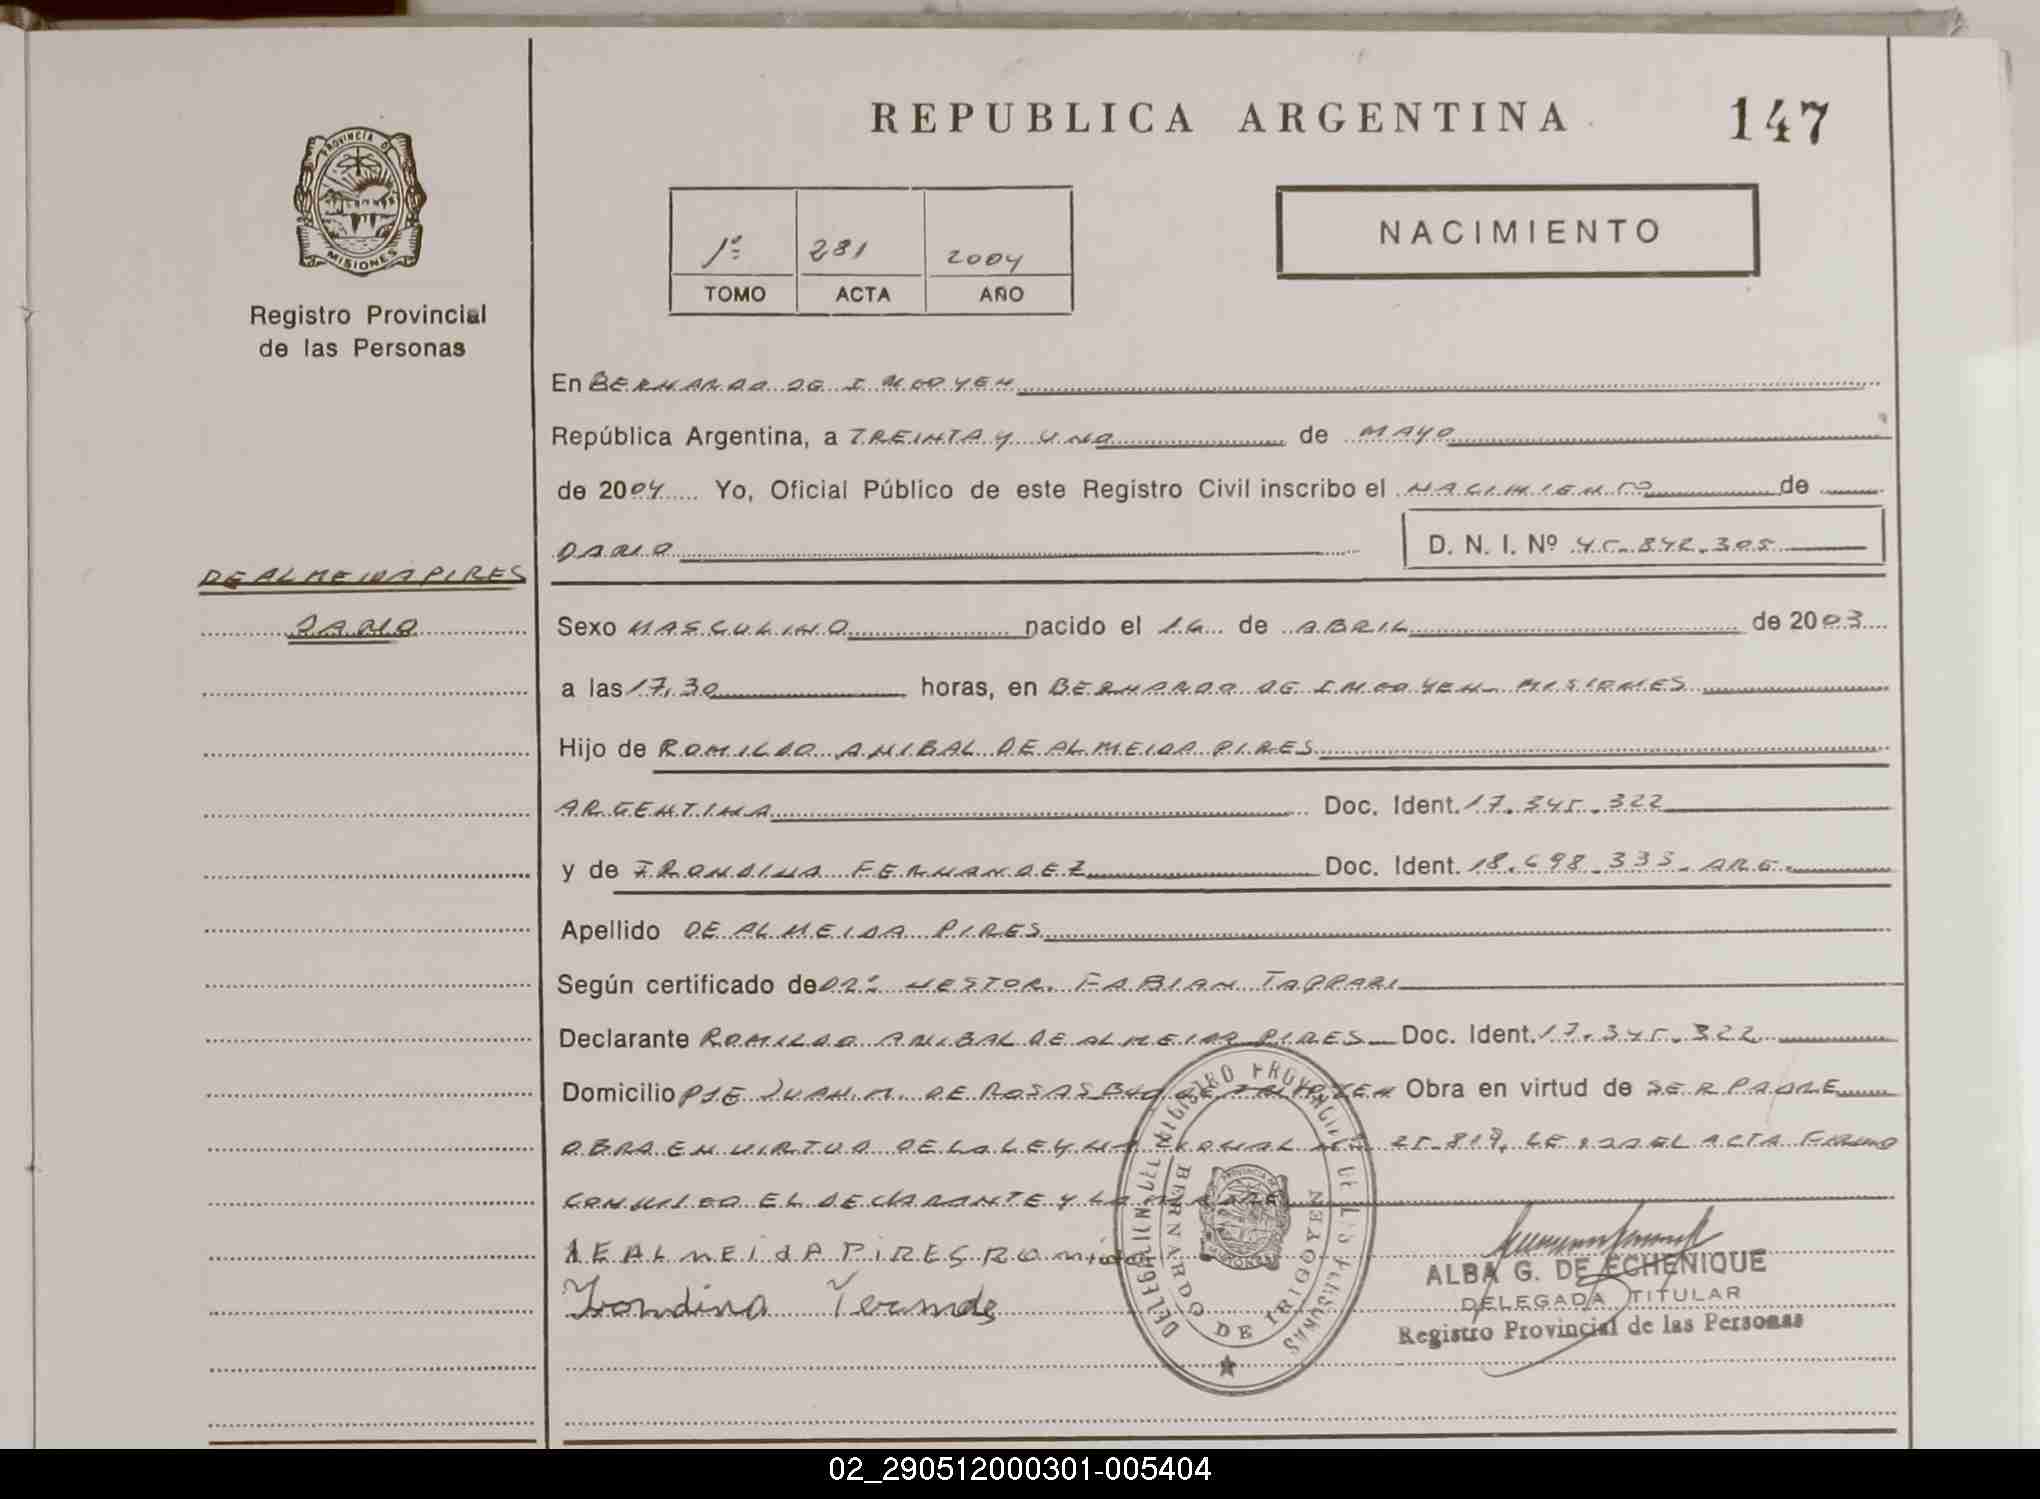 REPUBLICA ARGENTINA
147
PROVINCIA DE
MISIONES
Registro Provincial
de las Personas
1º 281 2004
TOMO ACTA AÑO
NACIMIENTO
En BERNARDO DE IRIGOYEN
República Argentina, a TREINTA Y UNO de MAYO
de 2004 Yo, Oficial Público de este Registro Civil inscribo el NACIMIENTO de
DARIO D. N. I. Nº 45.842.305
DE ALMEIDA PIRES
DARIO
Sexo MASCULINO nacido el 16 de ABRIL de 2003
a las 17,30 horas, en BERNARDO DE IRIGOYEN - MISIONES
Hijo de ROMILDO ANIBAL DE ALMEIDA PIRES
ARGENTINA Doc. Ident. 17.345.322
y de IRONDINA FERNANDEZ Doc. Ident. 18.698.335 - ARG.
Apellido DE ALMEIDA PIRES
Según certificado de DR. NESTOR FABIAN
Declarante ROMILDO ANIBAL DE ALMEIDA PIRES Doc. Ident. 17.345.322
Domicilio PJE JUAN M. DE ROSAS BDO DE IRIGOYEN Obra en virtud de SER PADRE
OBRA EN VIRTUD DE LA LEY NACIONAL Nº 25.819, LEIDA EL ACTA FIRMO
CONMIGO EL DECLARANTE Y LA MADRE
DE ALMEIDA PIRES Romildo
Irondina
DELEGACION DEL REGISTRO PROVINCIAL DE LAS PERSONAS
BERNARDO DE IRIGOYEN
ALBA G. DE ECHENIQUE
DELEGADA TITULAR
Registro Provincial de las Personas
02_290512000301-005404